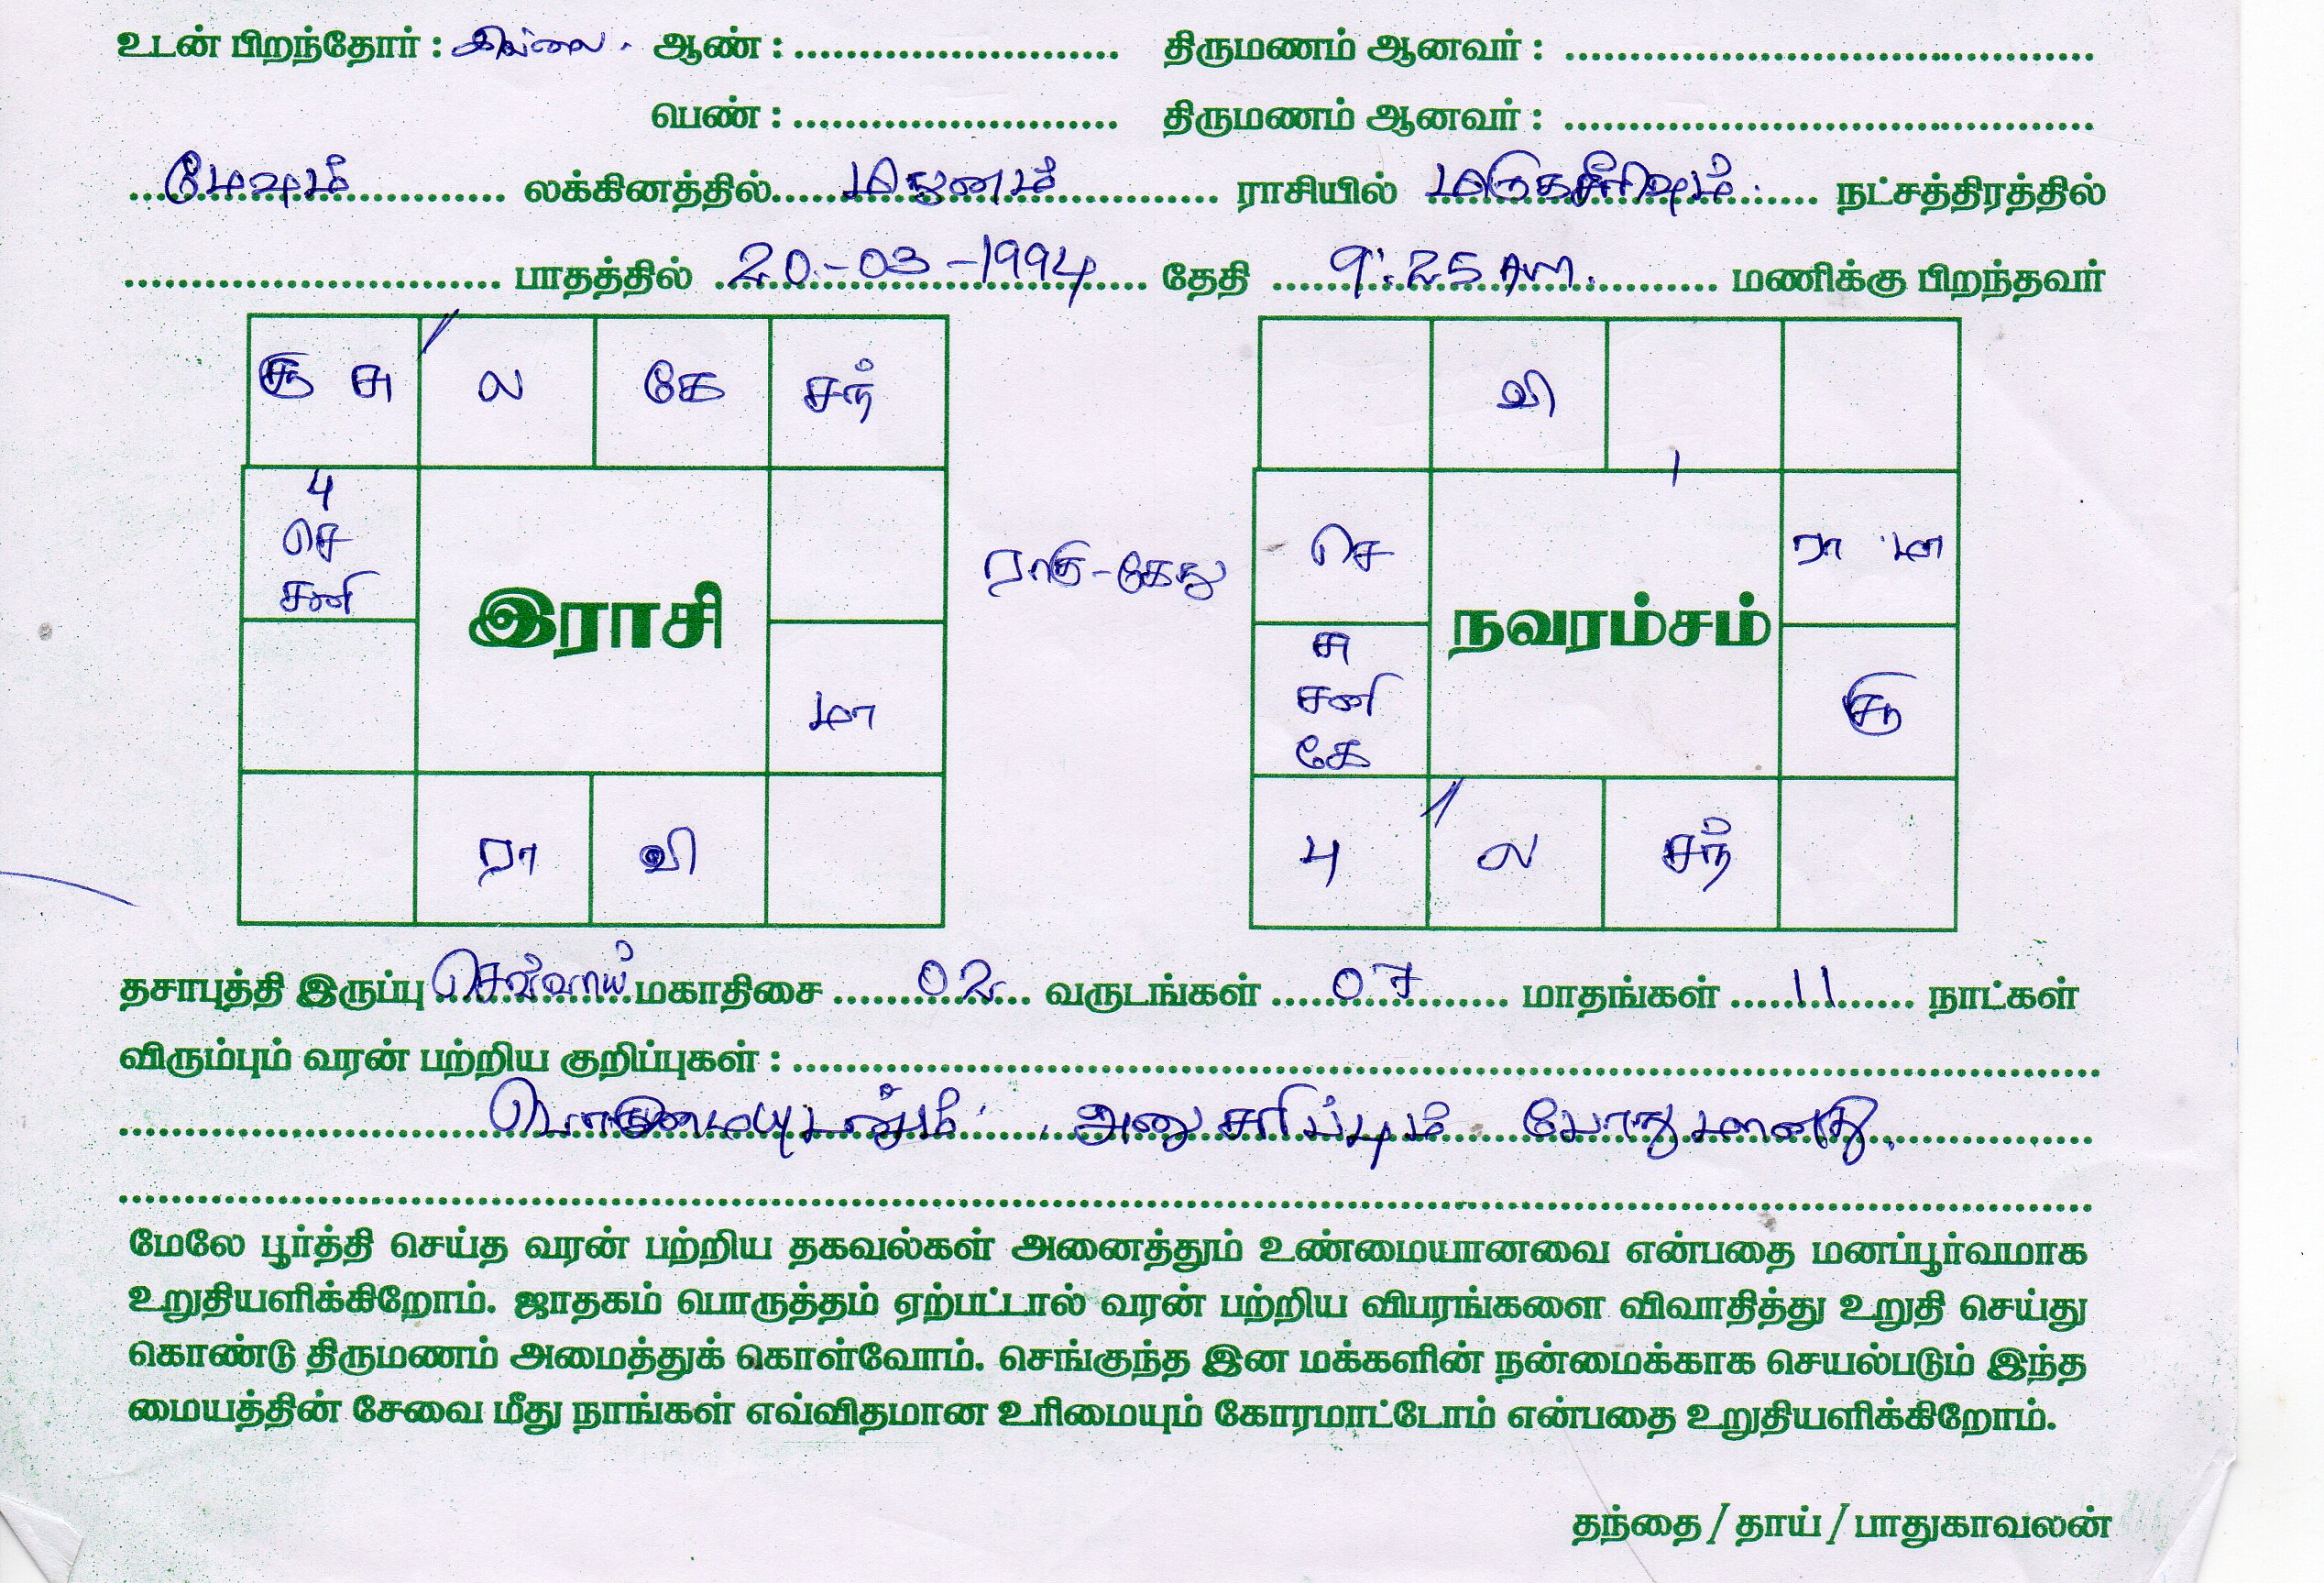 உடன் பிறந்தோர் : இல்லை. ஆண் : ........................ திருமணம் ஆனவர் : ........................
பெண் : ........................ திருமணம் ஆனவர் : ........................
மேஷம் லக்கினத்தில் மிதுனம் ராசியில் மிருகசீரிஷம் நட்சத்திரத்தில்
........................ பாதத்தில் 20-03-1994 தேதி 9.25 AM. மணிக்கு பிறந்தவர்
சூ சு ல கே சந்
பு
செ
சனி
இராசி
மா
ரா வி
ராகு - கேது
வி
செ ரா மா
நவரம்சம்
சு
சனி
கே
சூ
பு ல சந்
தசாபுத்தி இருப்பு செவ்வாய் மகாதிசை 02 வருடங்கள் 07 மாதங்கள் 11 நாட்கள்
விரும்பும் வரன் பற்றிய குறிப்புகள் : ........................
அனுசரிப்பும் போதுமானது.
மேலே பூர்த்தி செய்த வரன் பற்றிய தகவல்கள் அனைத்தும் உண்மையானவை என்பதை மனப்பூர்வமாக
உறுதியளிக்கிறோம். ஜாதகம் பொருத்தம் ஏற்பட்டால் வரன் பற்றிய விபரங்களை விவாதித்து உறுதி செய்து
கொண்டு திருமணம் அமைத்துக் கொள்வோம். செங்குந்த இன மக்களின் நன்மைக்காக செயல்படும் இந்த
மையத்தின் சேவை மீது நாங்கள் எவ்விதமான உரிமையும் கோரமாட்டோம் என்பதை உறுதியளிக்கிறோம்.
தந்தை / தாய் / பாதுகாவலன்